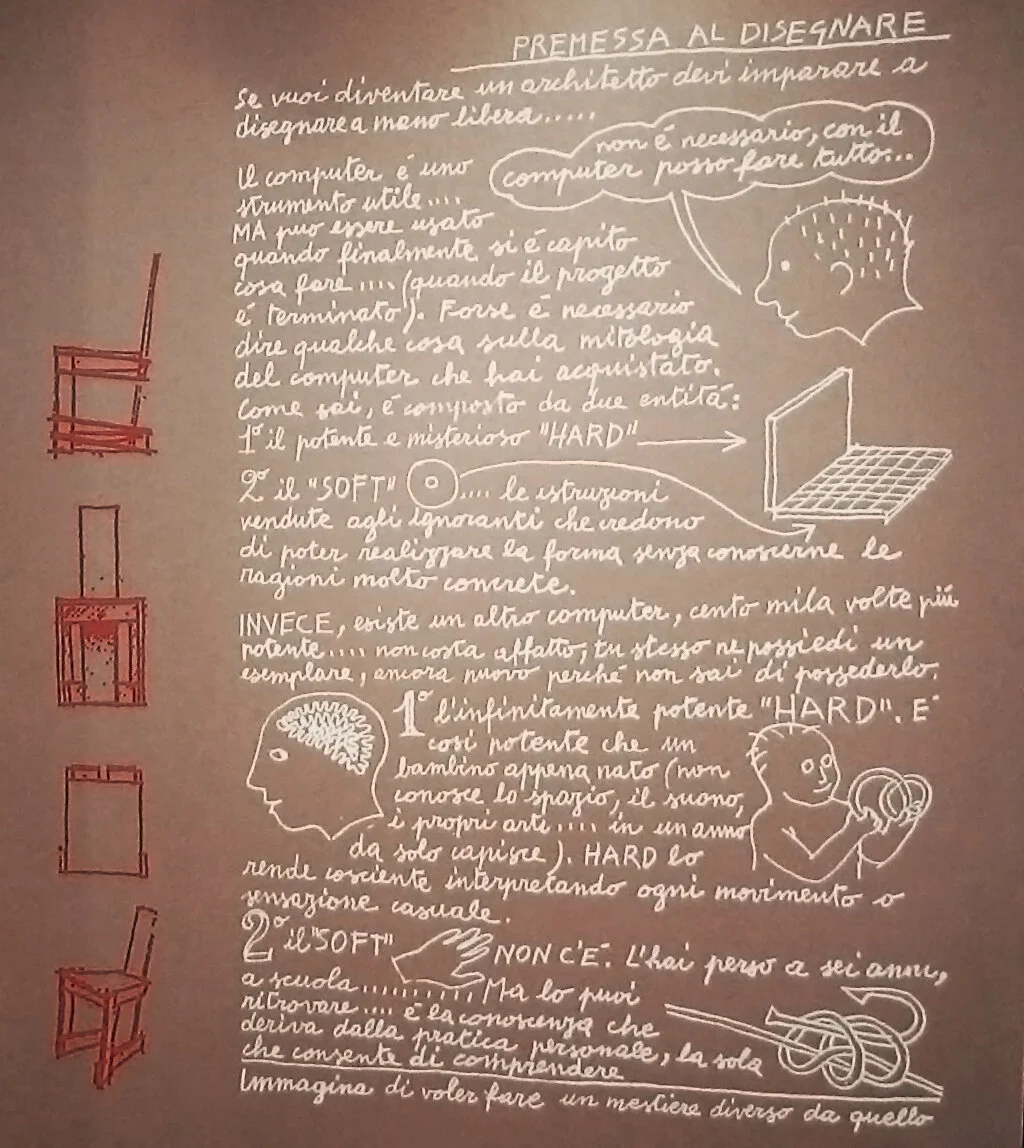 PREMESSA AL DISEGNARE
Se vuoi diventare un architetto devi imparare a
disegnare a mano libera.....
non é necessario, con il
computer posso fare tutto...
Il computer é uno
strumento utile....
MA può essere usato
quando finalmente si é capito
cosa fare .... (quando il progetto
é terminato). Forse é necessario
dire qualche cosa sulla mitologia
del computer che hai acquistato.
Come sai, é composto da due entità:
1° il potente e misterioso "HARD"
2° il "SOFT" .... le istruzioni
vendute agli ignoranti che credono
di poter realizzare la forma senza conoscerne le
ragioni molto concrete.
INVECE, esiste un altro computer, cento mila volte più
potente.... non costa affatto, tu stesso ne possiedi un
esemplare, ancora nuovo perché non sai di possederlo.
1° l'infinitamente potente "HARD". E'
così potente che un
bambino appena nato (non
conosce lo spazio, il suono,
i propri arti .... in un anno
da solo capisce). HARD lo
rende cosciente interpretando ogni movimento o
sensazione casuale.
2° il "SOFT" NON C'E'. L'hai perso a sei anni,
a scuola.......... Ma lo puoi
ritrovare .... é la conoscenza che
deriva dalla pratica personale, la sola
che consente di comprendere
Immagina di voler fare un mestiere diverso da quello